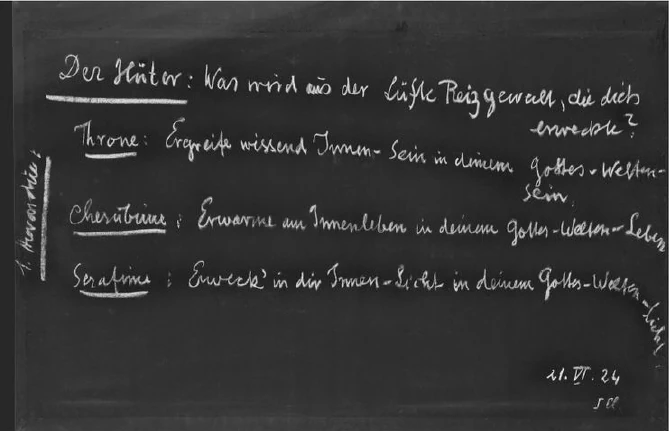 Der Hüter: Was wird aus der Lüfte Reizgewalt, die dich
erweckte?
Throne: Ergreife wissend Innen-Sein in deinem Gottes-Welten-
Sein.
Cherubime: Erwarme am Innenleben in deinem Gottes-Welten-Leben
Serafime: Erweck' in dir Innen-Licht in deinem Gottes-Welten-Licht.
1. Hierarchie:
21. VI. 24